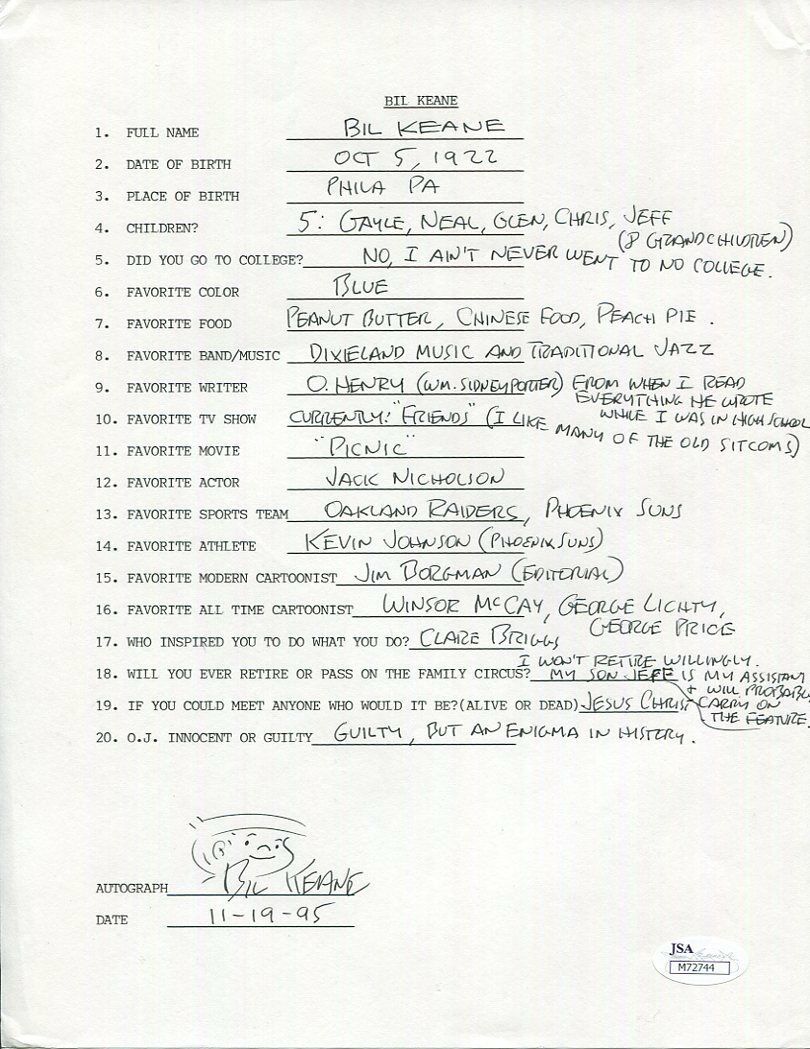 BIL KEANE
1. FULL NAME BIL KEANE
2. DATE OF BIRTH OCT 5, 1922
3. PLACE OF BIRTH PHILA PA
4. CHILDREN? 5: GAYLE, NEAL, GLEN, CHRIS, JEFF
(8 GRANDCHILDREN)
5. DID YOU GO TO COLLEGE? NO, I AIN'T NEVER WENT TO NO COLLEGE.
6. FAVORITE COLOR BLUE
7. FAVORITE FOOD PEANUT BUTTER, CHINESE FOOD, PEACH PIE.
8. FAVORITE BAND/MUSIC DIXIELAND MUSIC AND TRADITIONAL JAZZ
9. FAVORITE WRITER O. HENRY (WM. SIDNEY PORTER) FROM WHEN I READ
EVERYTHING HE WROTE
WHILE I WAS IN HIGH SCHOOL
10. FAVORITE TV SHOW CURRENTLY: "FRIENDS" (I LIKE
MANY OF THE OLD SITCOMS)
11. FAVORITE MOVIE "PICNIC"
12. FAVORITE ACTOR JACK NICHOLSON
13. FAVORITE SPORTS TEAM OAKLAND RAIDERS, PHOENIX SUNS
14. FAVORITE ATHLETE KEVIN JOHNSON (PHOENIX SUNS)
15. FAVORITE MODERN CARTOONIST JIM BORGMAN (EDITORIAL)
16. FAVORITE ALL TIME CARTOONIST WINSOR McCAY, GEORGE LICHTY,
GEORGE PRICE
17. WHO INSPIRED YOU TO DO WHAT YOU DO? CLARE BRIGGS
I WON'T RETIRE WILLINGLY.
18. WILL YOU EVER RETIRE OR PASS ON THE FAMILY CIRCUS? MY SON JEFF IS MY ASSISTANT
& WILL PROBABLY
CARRY ON
THE FEATURE.
19. IF YOU COULD MEET ANYONE WHO WOULD IT BE?(ALIVE OR DEAD) JESUS CHRIST
20. O.J. INNOCENT OR GUILTY GUILTY, BUT AN ENIGMA IN HISTORY.
AUTOGRAPH BIL KEANE
DATE 11-19-95
JSA
M72744